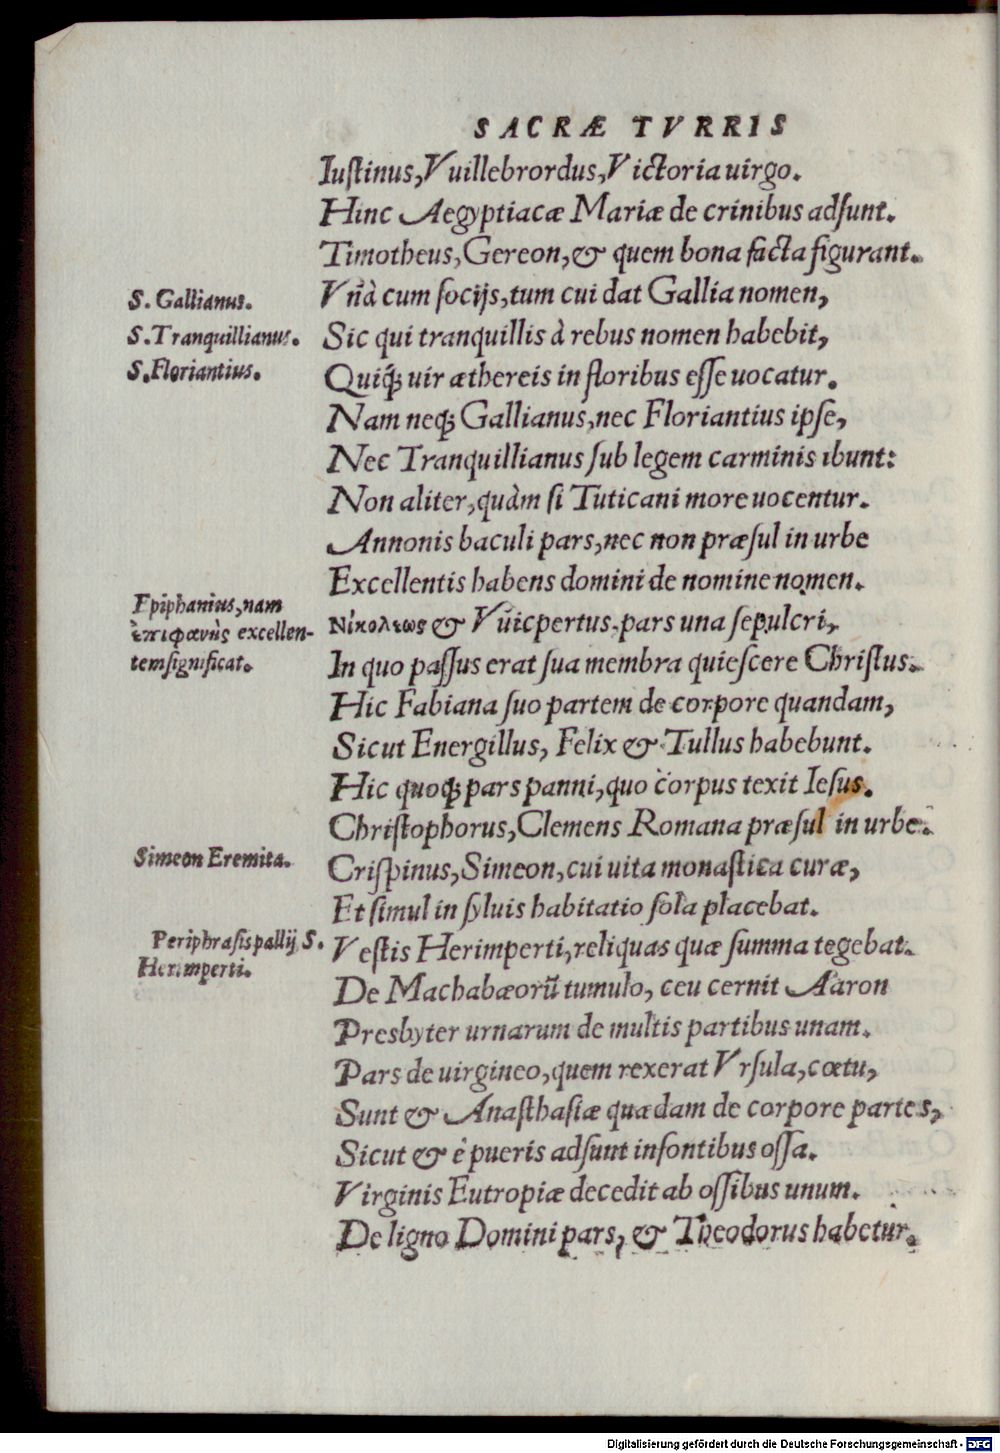 SACRÆ TVRRIS
Iustinus, Vuillebrordus, Victoria uirgo.
Hinc Aegyptiacæ Mariæ de crinibus adsunt.
Timotheus, Gereon, & quem bona facta figurant.
S. Gallianus.
Vnà cum socijs, tum cui dat Gallia nomen,
S. Tranquillianus.
Sic qui tranquillis à rebus nomen habebit,
S. Floriantius.
Quiq́; uir æthereis in floribus esse uocatur.
Nam neq; Gallianus, nec Floriantius ipse,
Nec Tranquillianus sub legem carminis ibunt:
Non aliter, quàm si Tuticani more uocentur.
Annonis baculi pars, nec non præsul in urbe
Excellentis habens domini de nomine nomen.
Epiphanius, nam
ἐπιφανὴς excellen-
tem significat.
Νίκολεως & Vuicpertus, pars una sepulcri,
In quo passus erat sua membra quiescere Christus.
Hic Fabiana suo partem de corpore quandam,
Sicut Energillus, Felix & Tullus habebunt.
Hic quoq; pars panni, quo corpus texit Iesus.
Christophorus, Clemens Romana præsul in urbe.
Simeon Eremita.
Crispinus, Simeon, cui uita monastica curæ,
Et simul in syluis habitatio sola placebat.
Periphrasis pallij S.
Herimperti.
Vestis Herimperti, reliquas quæ summa tegebat.
De Machabæorū tumulo, ceu cernit Aaron
Presbyter urnarum de multis partibus unam.
Pars de uirgineo, quem rexerat Vrsula, cœtu,
Sunt & Anasthasiæ quædam de corpore partes,
Sicut & è pueris adsunt insontibus ossa.
Virginis Eutropiæ decedit ab ossibus unum.
De ligno Domini pars, & Theodorus habetur.
Digitalisierung gefördert durch die Deutsche Forschungsgemeinschaft - DFG